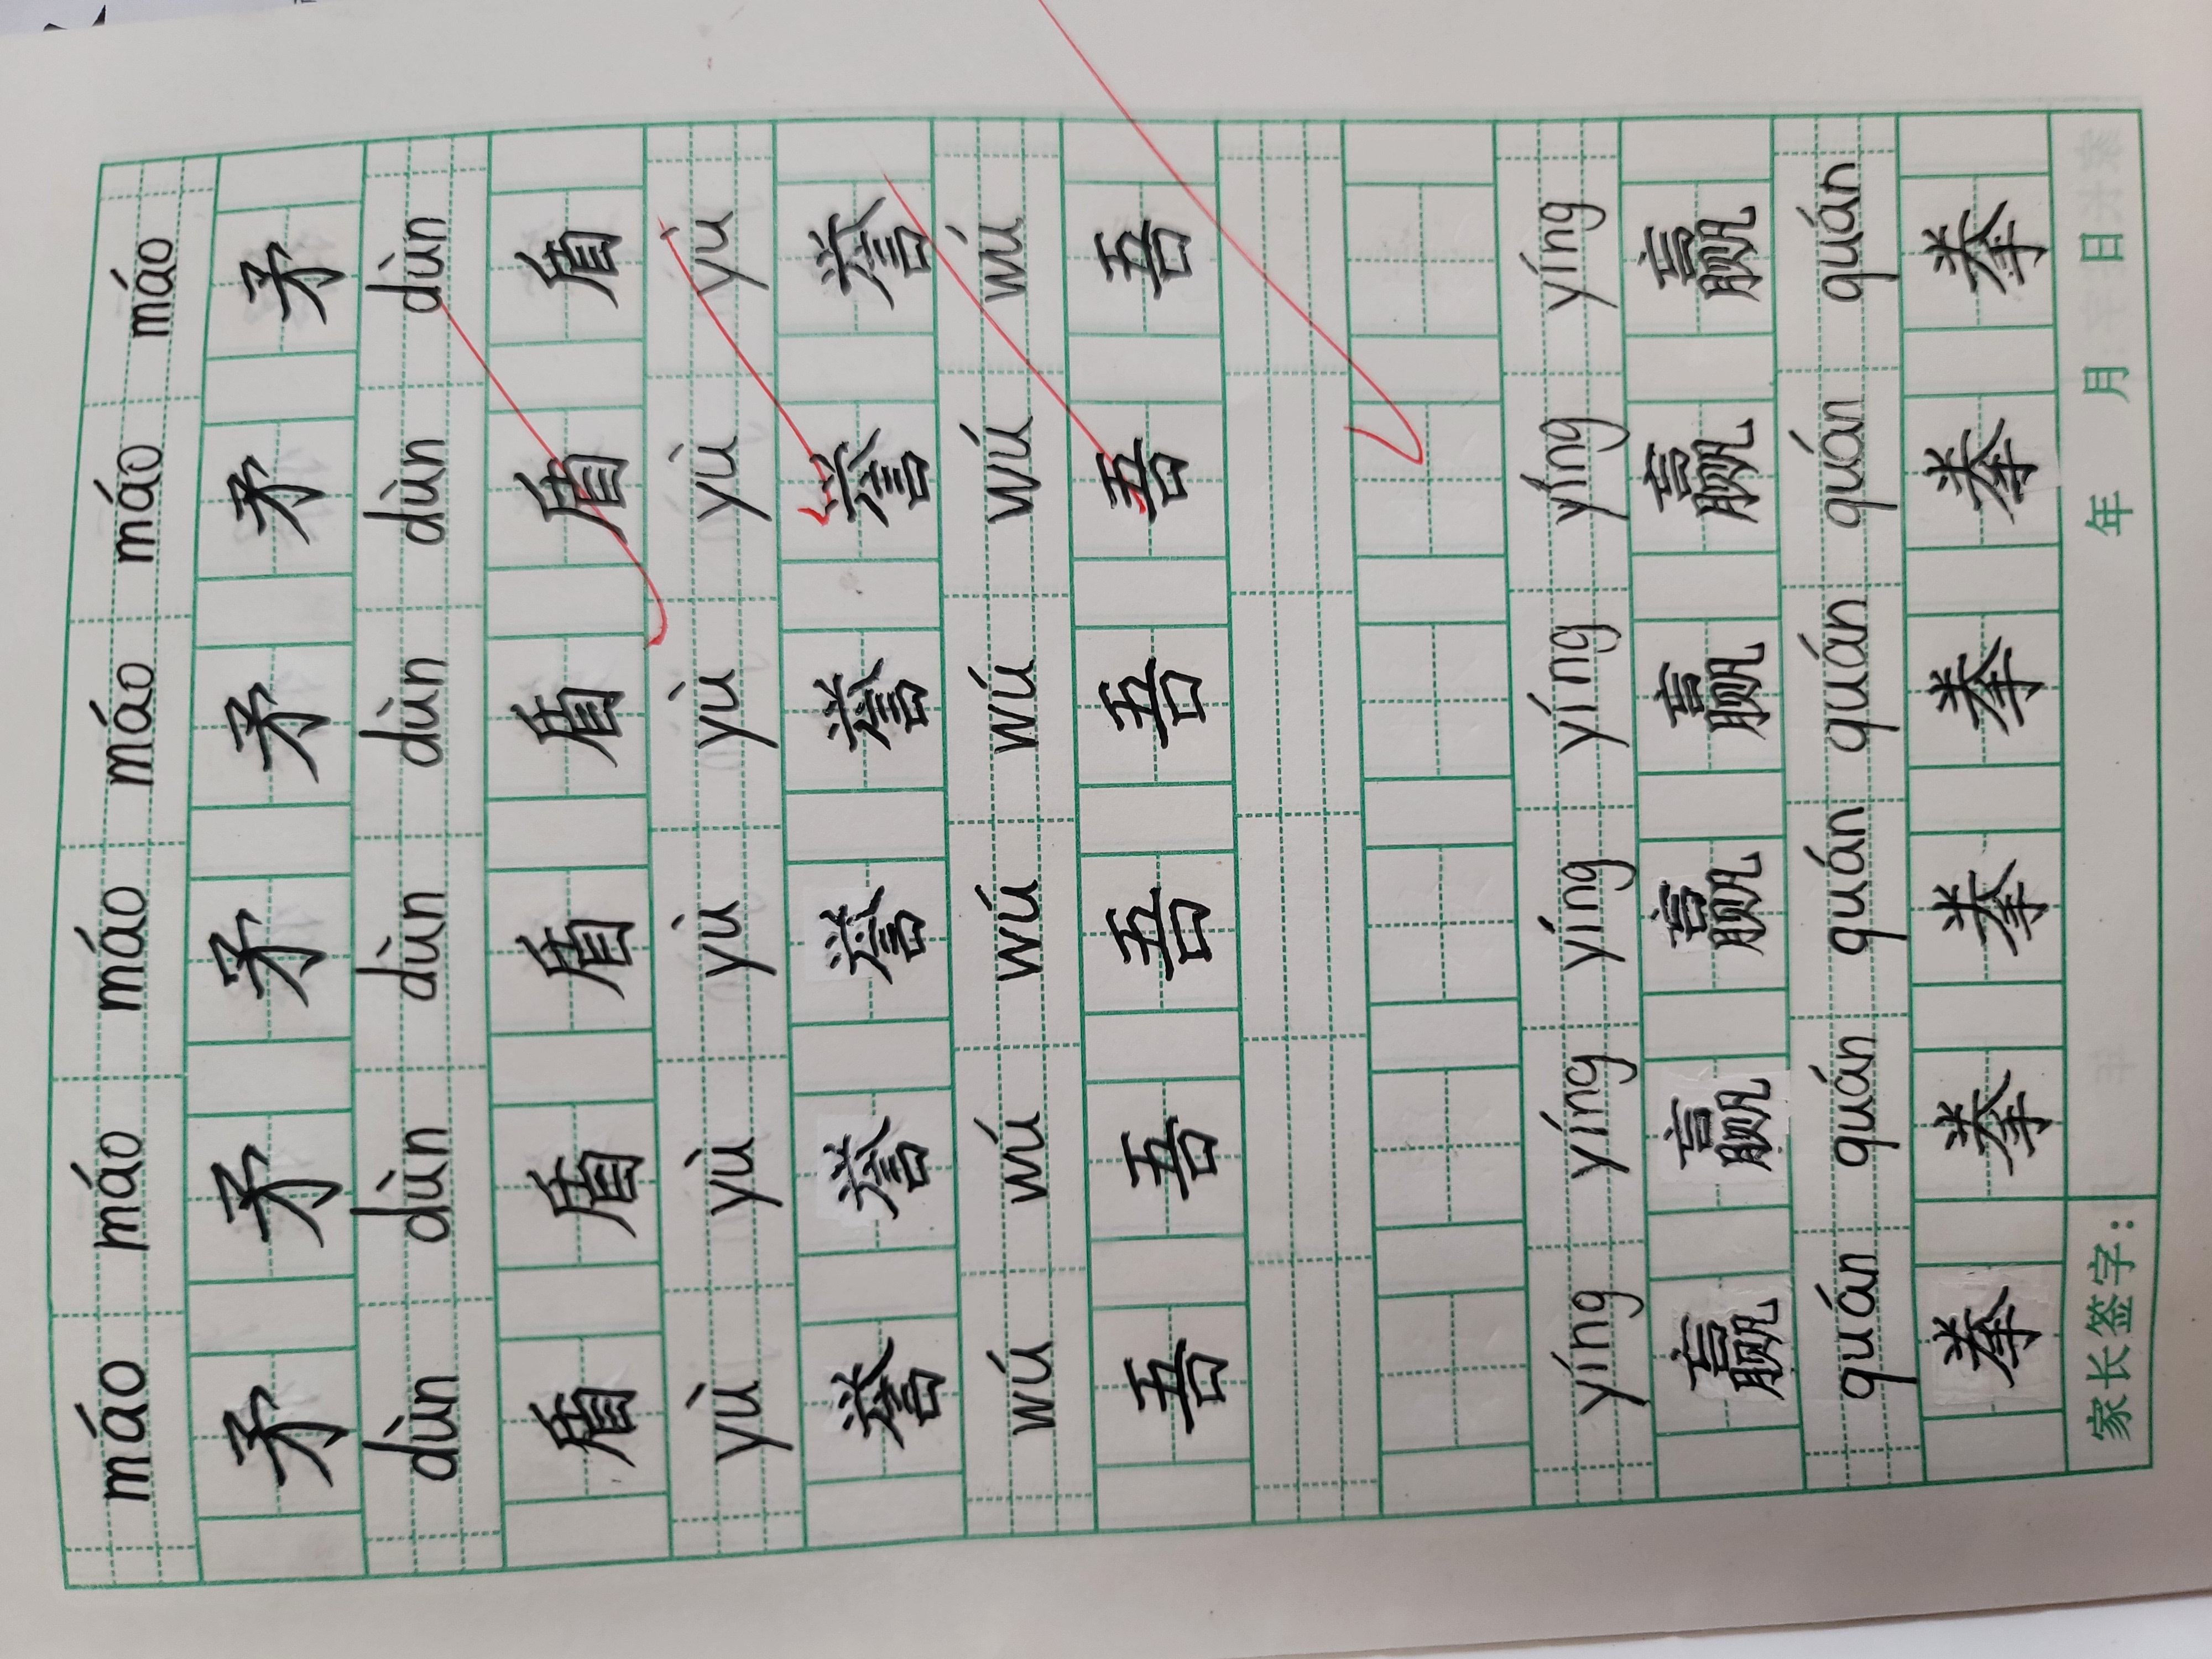 máo máo máo máo máo máo
矛 矛 矛 矛 矛 矛
dùn dùn dùn dùn dùn dùn
盾 盾 盾 盾 盾 盾
yù yù yù yù yù yù
誉 誉 誉 誉 誉 誉
wú wú wú wú wú wú
吾 吾 吾 吾 吾 吾
yíng yíng yíng yíng yíng yíng
赢 赢 赢 赢 赢 赢
quán quán quán quán quán quán
拳 拳 拳 拳 拳 拳
家长签字: 年 月 日